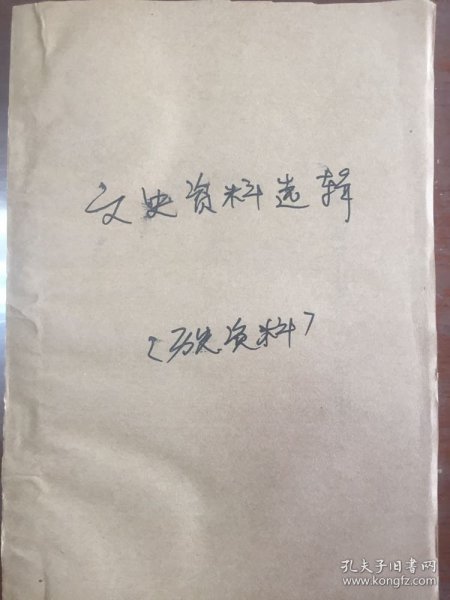 文史资料选辑
〔历史资料〕
孔夫子旧书网
www.kongfz.com